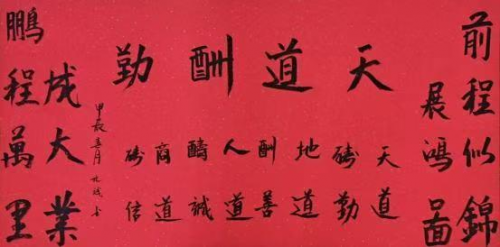 前程似錦
展鴻圖
天道酬勤
天道酬勤
地道酬善
人道酬誠
商道酬信
甲辰
成大業
鵬程萬里